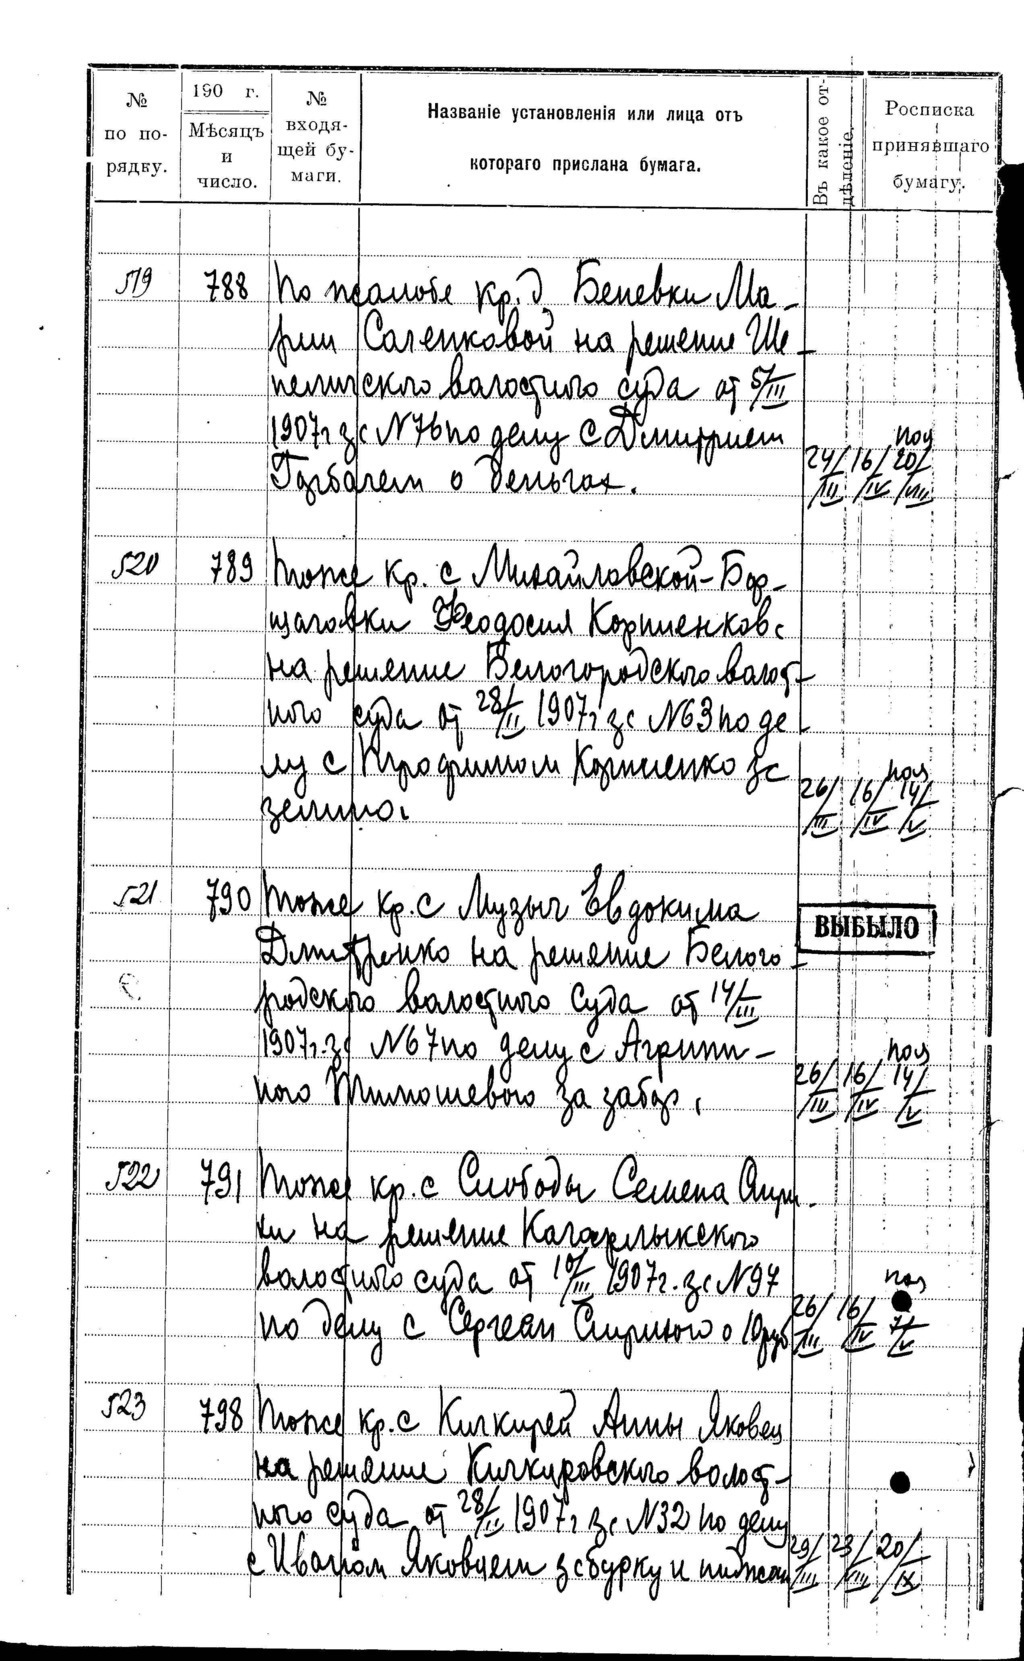 № по по-рядку.
190 г. Мѣсяцъ и число.
№ входя-щей бу-маги.
Названіе установленія или лица отъ котораго прислана бумага.
Въ какое от-дѣленіе.
Росписка принявшаго бумагу.
519 788 По жалобе кр. д Беневки Ма-
рии Саленковой на решение Ше-
пеличского валостного суда от 5/III
1907 г за N76 по делу с Дмитрием
Горбачем о деньгах.
пол
24/III 16/IV 20/VIII
520 789 тоже кр. с Михайловской-Бор-
щаговки Феодосия Корниенкова
на решение Белогородского валост-
ного суда от 28/II 1907 г за N63 по де-
лу с Трофимом Корниенко за
землю.
пол
26/III 16/IV 14/V
521 790 тоже кр. с Музыч Евдокима
Дмитренко на решение Белого-
родского валостного суда от 14/III
1907 г. за N67 по делу с Агрипи-
ного Тимошевого за забор.
ВЫБЫЛО
пол
26/III 16/IV 14/V
522 791 тоже кр. с Слободы Семена
на решение Кагарлыкского
валостного суда от 10/III 1907 г. за N97
по делу с Сергеем о 10 руб
пол
26/III 16/IV 7/V
523 798 тоже кр. с Кичкирей Анны Яковец
на решение Кичкировского волост-
ного суда от 28/II 1907 г за N32 по делу
с Иваном Яковцем за бурку и пиджак
29/III 23/VIII 20/IX